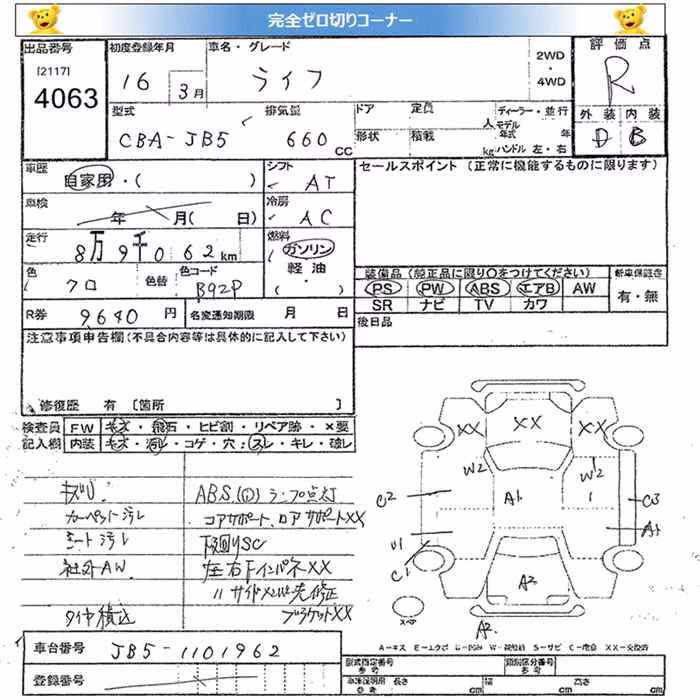 完全ゼロ切りコーナー
出品番号 初度登録年月 車名・グレード 2WD ・ 4WD 評価点
[2117] 4063 16 3月 ライフ R
型式 排気量 ドア 定員 人 ディーラー・並行 外装 内装
CBA-JB5 660cc 形状 積載 kg モデル年式 年 D B
ハンドル 左・右
車歴 自家用・( ) シフト AT セールスポイント(正常に機能するものに限ります)
車検 年 月( 日) 冷房 AC
走行 8万9千062km 燃料 ガソリン
色 クロ 色替 色コード B92P 軽油・( )
装備品(純正品に限り○をつけてください) 新車保証書
PS PW ABS エアB AW 有・無
SR ナビ TV カワ
R券 9640円 名変通知期限 月 日 後日品
注意事項申告欄(不具合内容等は具体的に記入して下さい)
修復歴 有 [箇所 ]
検査員 FW キズ・飛石・ヒビ割・リペア跡・×要
記入欄 内装 キズ・汚レ・コゲ・穴・スレ・キレ・破レ
キズU ABS,(①)ランプ点灯
カーペット汚レ コアサポート、ロアサポートXX
シート汚レ 下回りSC
社外AW 左右FインパネXX
〃サイドメンバー先修正
タイヤ積込 ブラケットXX
XX XX XX
W2 W2
C2 A1 1 C3
U1 A1
C1
A2
スペア A2
A-キズ E-エクボ U-凹み W-補修跡 S-サビ C-腐食 XX-交換済
車台番号 JB5-1101962
登録番号
型式指定番号 類別区分番号
車庫証明用 長さ cm 幅 cm 高さ cm